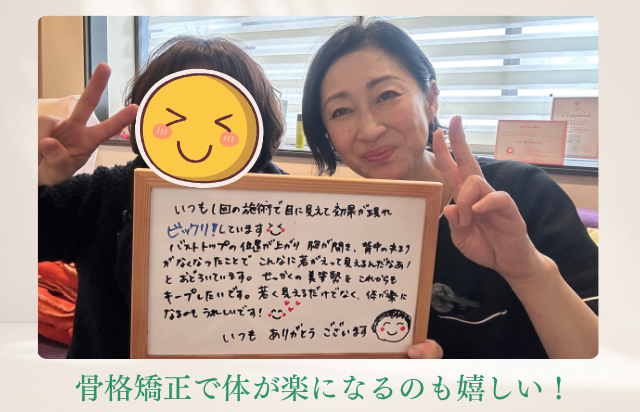 いつも1回の施術で目に見えて効果が現れ
ビックリ!しています
バストトップの位置が上がり 胸が開き、背中の丸まり
がなくなったことで こんなに若がえって見えるんだなあ!
と おどろいています。せっかくの 美姿勢を これからも
キープしたいです。若く見えるだけでなく、体が楽に
なるのも うれしいです!
いつも ありがとう ございます
骨格矯正で体が楽になるのも嬉しい！